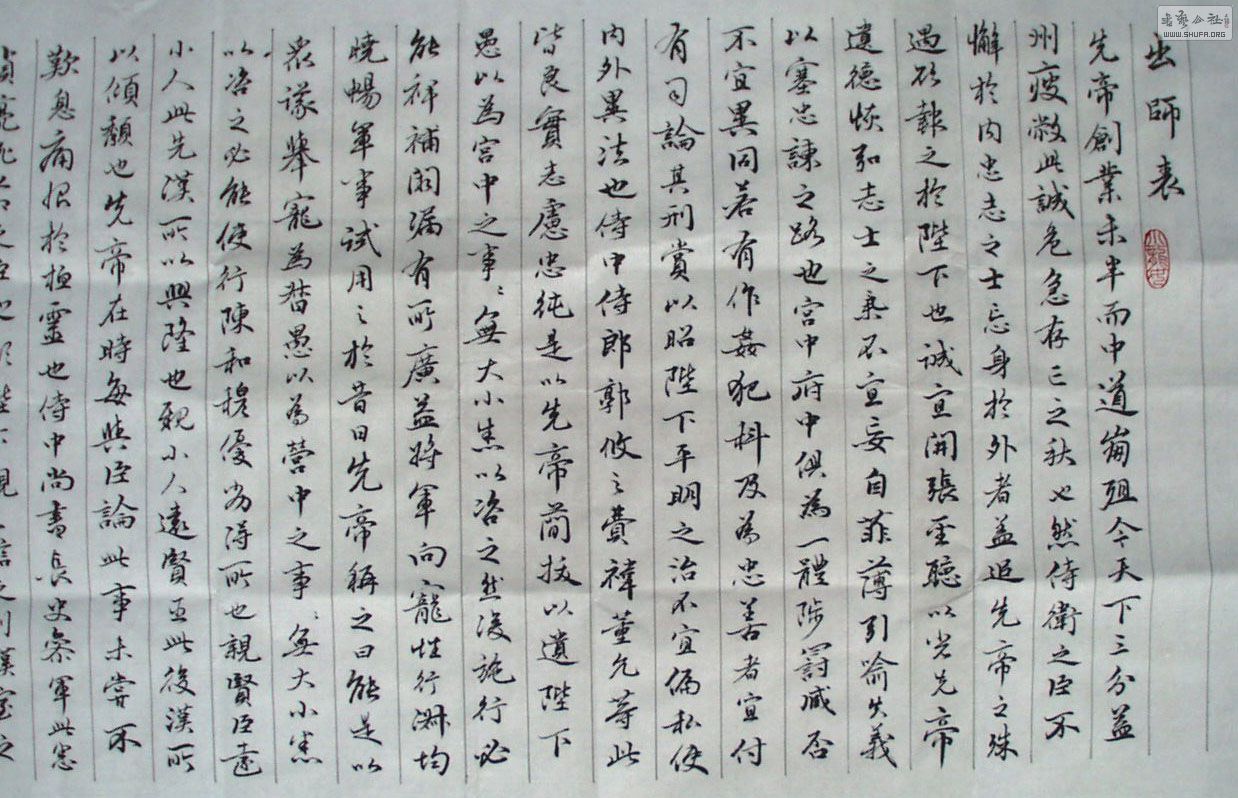 出師表
先帝創業未半而中道崩殂今天下三分益
州疲敝此誠危急存亡之秋也然侍衛之臣不
懈於內忠志之士忘身於外者蓋追先帝之殊
遇欲報之於陛下也誠宜開張聖聽以光先帝
遺德恢弘志士之氣不宜妄自菲薄引喻失義
以塞忠諫之路也宮中府中俱為一體陟罰臧否
不宜異同若有作姦犯科及為忠善者宜付
有司論其刑賞以昭陛下平明之治不宜偏私使
內外異法也侍中侍郎郭攸之費禕董允等此
皆良實志慮忠純是以先帝簡拔以遺陛下
愚以為宮中之事〻無大小悉以咨之然後施行必
能裨補闕漏有所廣益將軍向寵性行淑均
曉暢軍事試用之於昔日先帝稱之曰能是以
眾議舉寵為督愚以為營中之事〻無大小悉
以咨之必能使行陳和穆優劣得所也親賢臣遠
小人此先漢所以興隆也親小人遠賢臣此後漢所
以傾頹也先帝在時每與臣論此事未嘗不
歎息痛恨於桓靈也侍中尚書長史參軍此悉
書藝公社
WWW.SHUFA.ORG